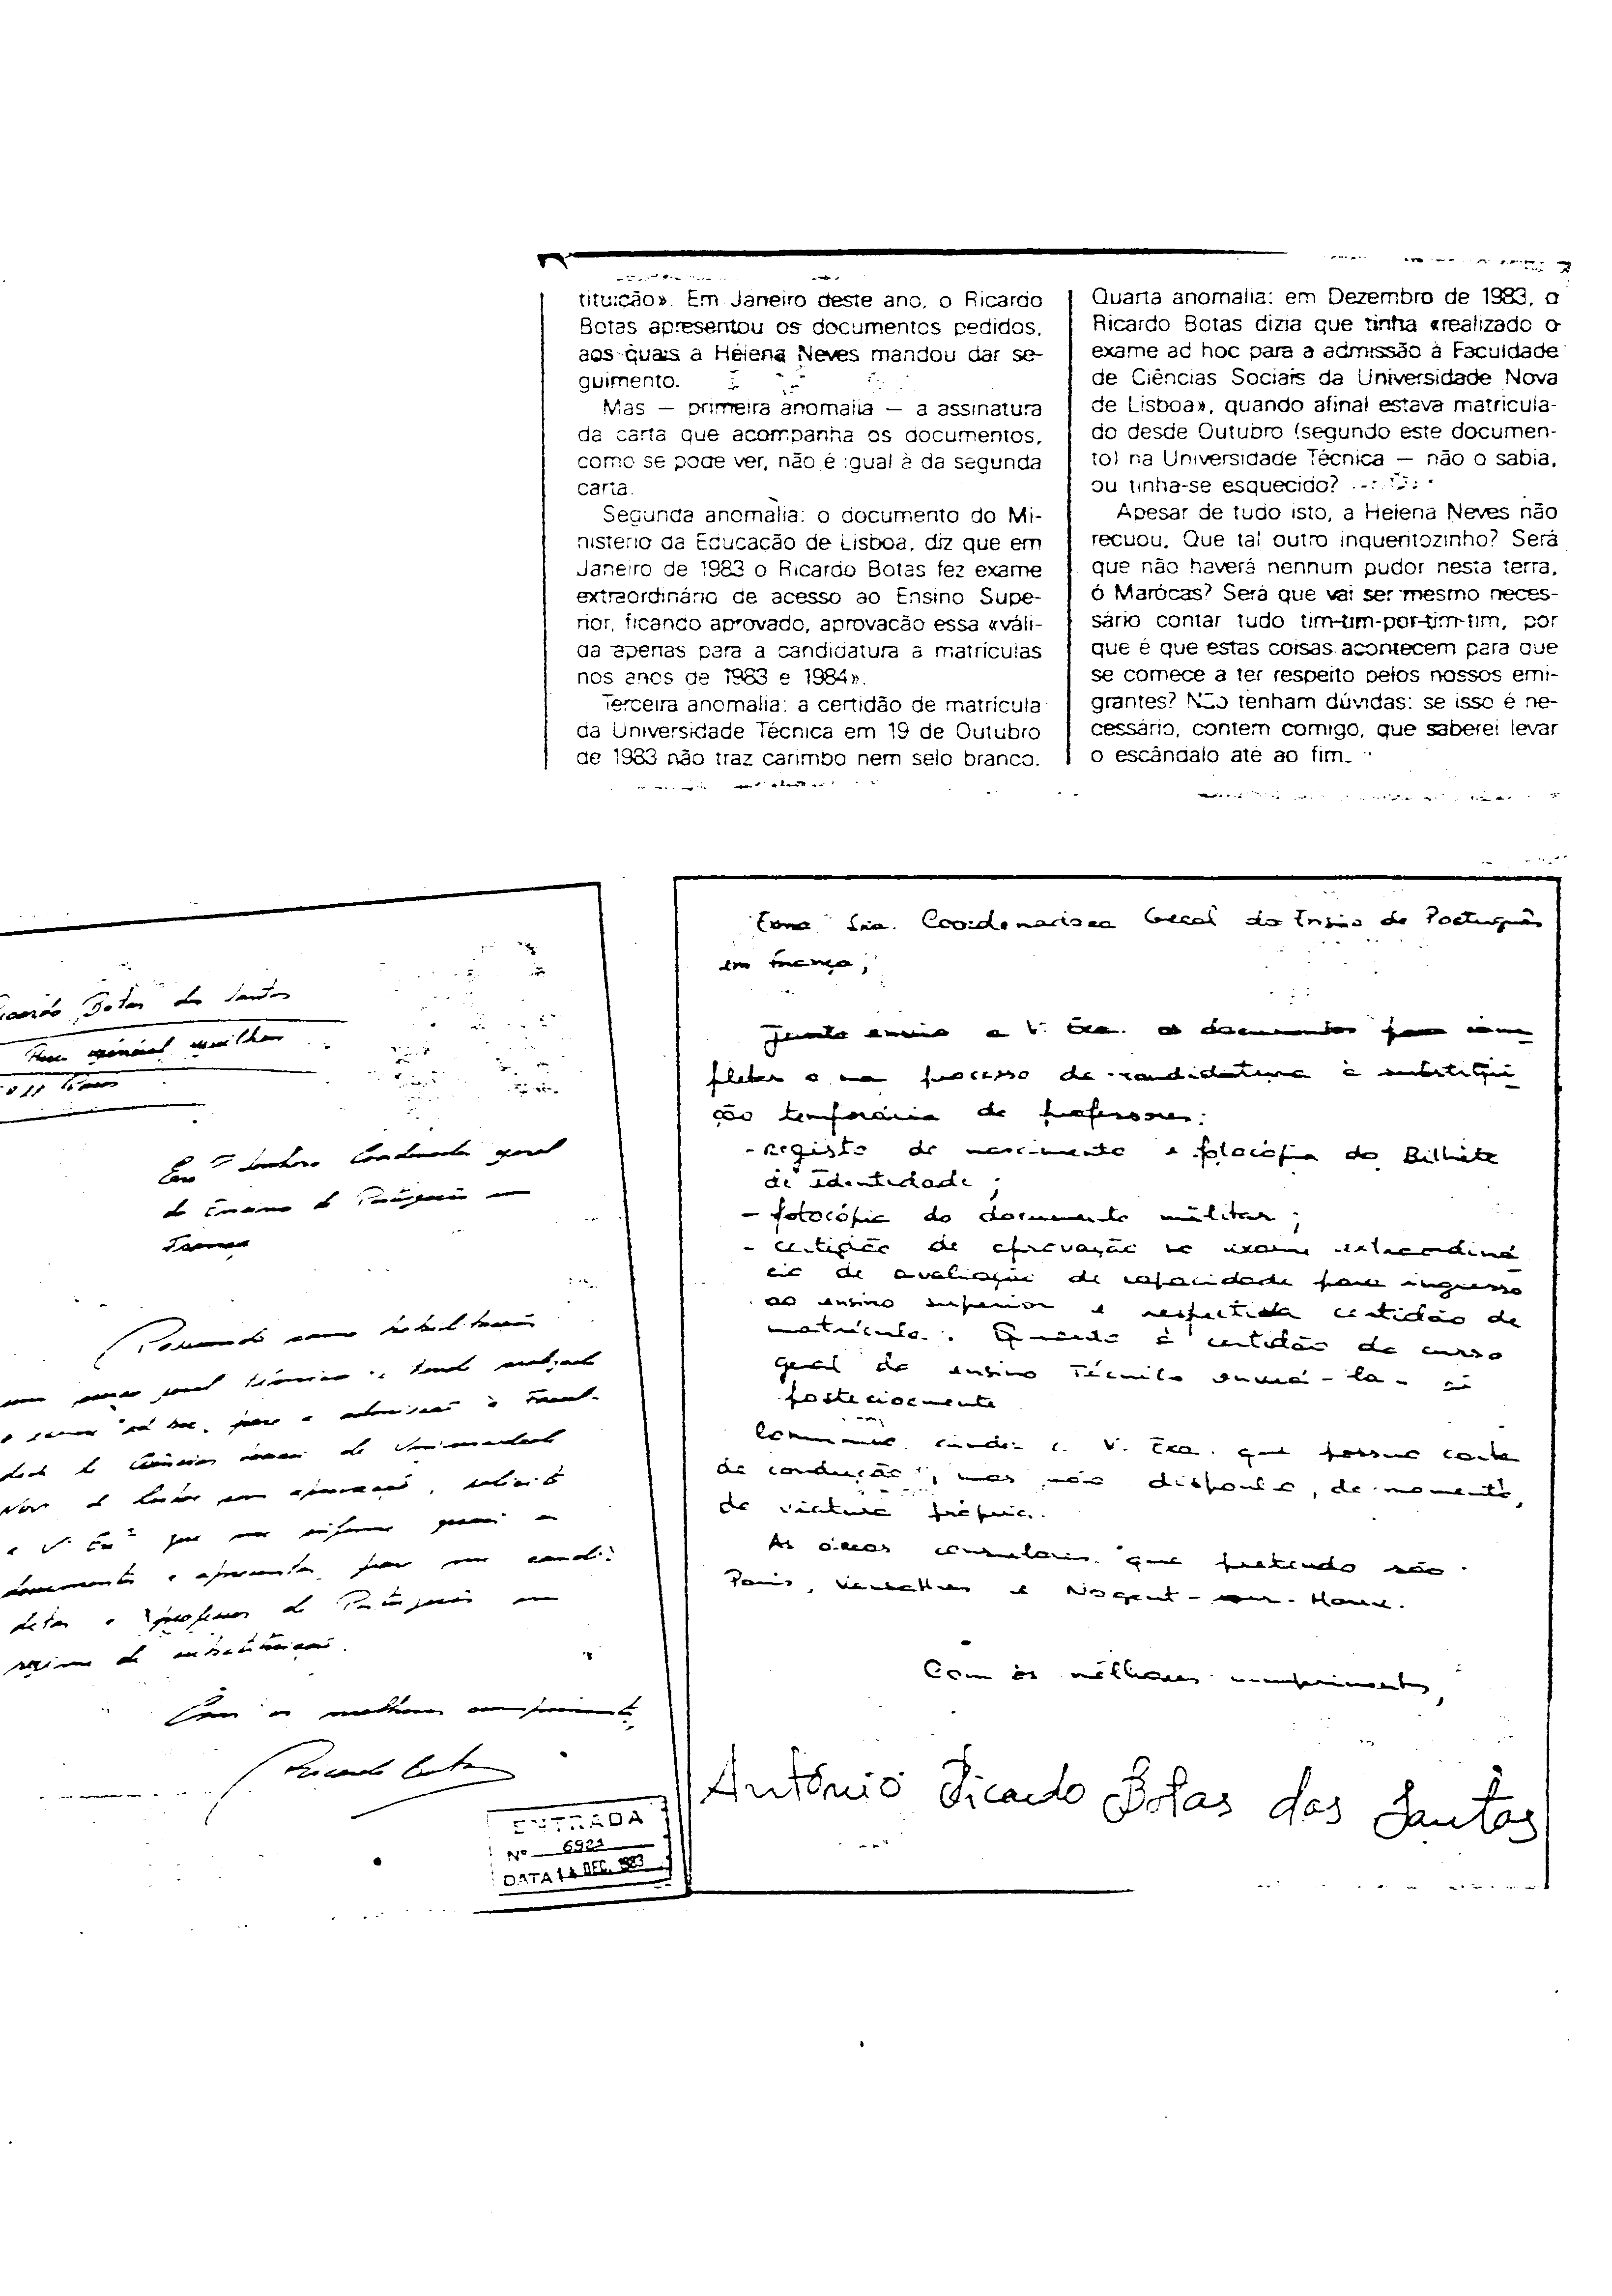 tituição». Em Janeiro deste ano, o Ricardo
Botas apresentou os documentos pedidos,
aos quais a Helena Neves mandou dar se-
guimento.
Mas — primeira anomalia — a assinatura
da carta que acompanha os documentos,
como se pode ver, não é igual à da segunda
carta.
Segunda anomalia: o documento do Mi-
nistério da Educação de Lisboa, diz que em
Janeiro de 1983 o Ricardo Botas fez exame
extraordinário de acesso ao Ensino Supe-
rior, ficando aprovado, aprovação essa «váli-
da apenas para a candidatura a matrículas
nos anos de 1983 e 1984».
Terceira anomalia: a certidão de matrícula
da Universidade Técnica em 19 de Outubro
de 1983 não traz carimbo nem selo branco.
Quarta anomalia: em Dezembro de 1983, o
Ricardo Botas dizia que tinha «realizado o
exame ad hoc para a admissão à Faculdade
de Ciências Sociais da Universidade Nova
de Lisboa», quando afinal estava matricula-
do desde Outubro (segundo este documen-
to) na Universidade Técnica — não o sabia,
ou tinha-se esquecido?
Apesar de tudo isto, a Helena Neves não
recuou. Que tal outro inqueritozinho? Será
que não haverá nenhum pudor nesta terra,
ó Marócas? Será que vai ser mesmo neces-
sário contar tudo tim-tim-por-tim-tim, por
que é que estas coisas acontecem para que
se comece a ter respeito pelos nossos emi-
grantes? Não tenham dúvidas: se isso é ne-
cessário, contem comigo, que saberei levar
o escândalo até ao fim.
Botas dos Santos
geral
do Ensino de Português em
França
habilitações
geral
ad hoc, para a admissão à
de
Nova de Lisboa com aprovação, solicito
a V. Exª que me informe quais os
documentos a apresentar para me candi-
datar a professor de Português em
regime de substituição.
Com os melhores cumprimentos
Ricardo Botas
ENTRADA
Nº 6921
DATA 14 DEC. 1983
Exma Sra. Coordenadora Geral do Ensino de Português
em França,
Junto envio a V. Exa. os documentos para com
pletar o meu processo de candidatura à substitui
ção temporária de professores:
- registo de nascimento e fotocópia do Bilhete
de Identidade;
- fotocópia do documento militar;
- certidão de aprovação no exame extraordiná
rio de avaliação de capacidade para ingresso
ao ensino superior e respectiva certidão de
matrícula. Quanto à certidão do curso
geral do ensino Técnico enviá-la-ei
posteriormente
Comunico ainda a V. Exa. que possuo carta
de condução, mas não disponho, de momento,
de viatura própria.
As áreas consulares que pretendo são
Paris, Versailles e Nogent-sur-Marne.
Com os melhores cumprimentos,
António Ricardo Botas dos Santos